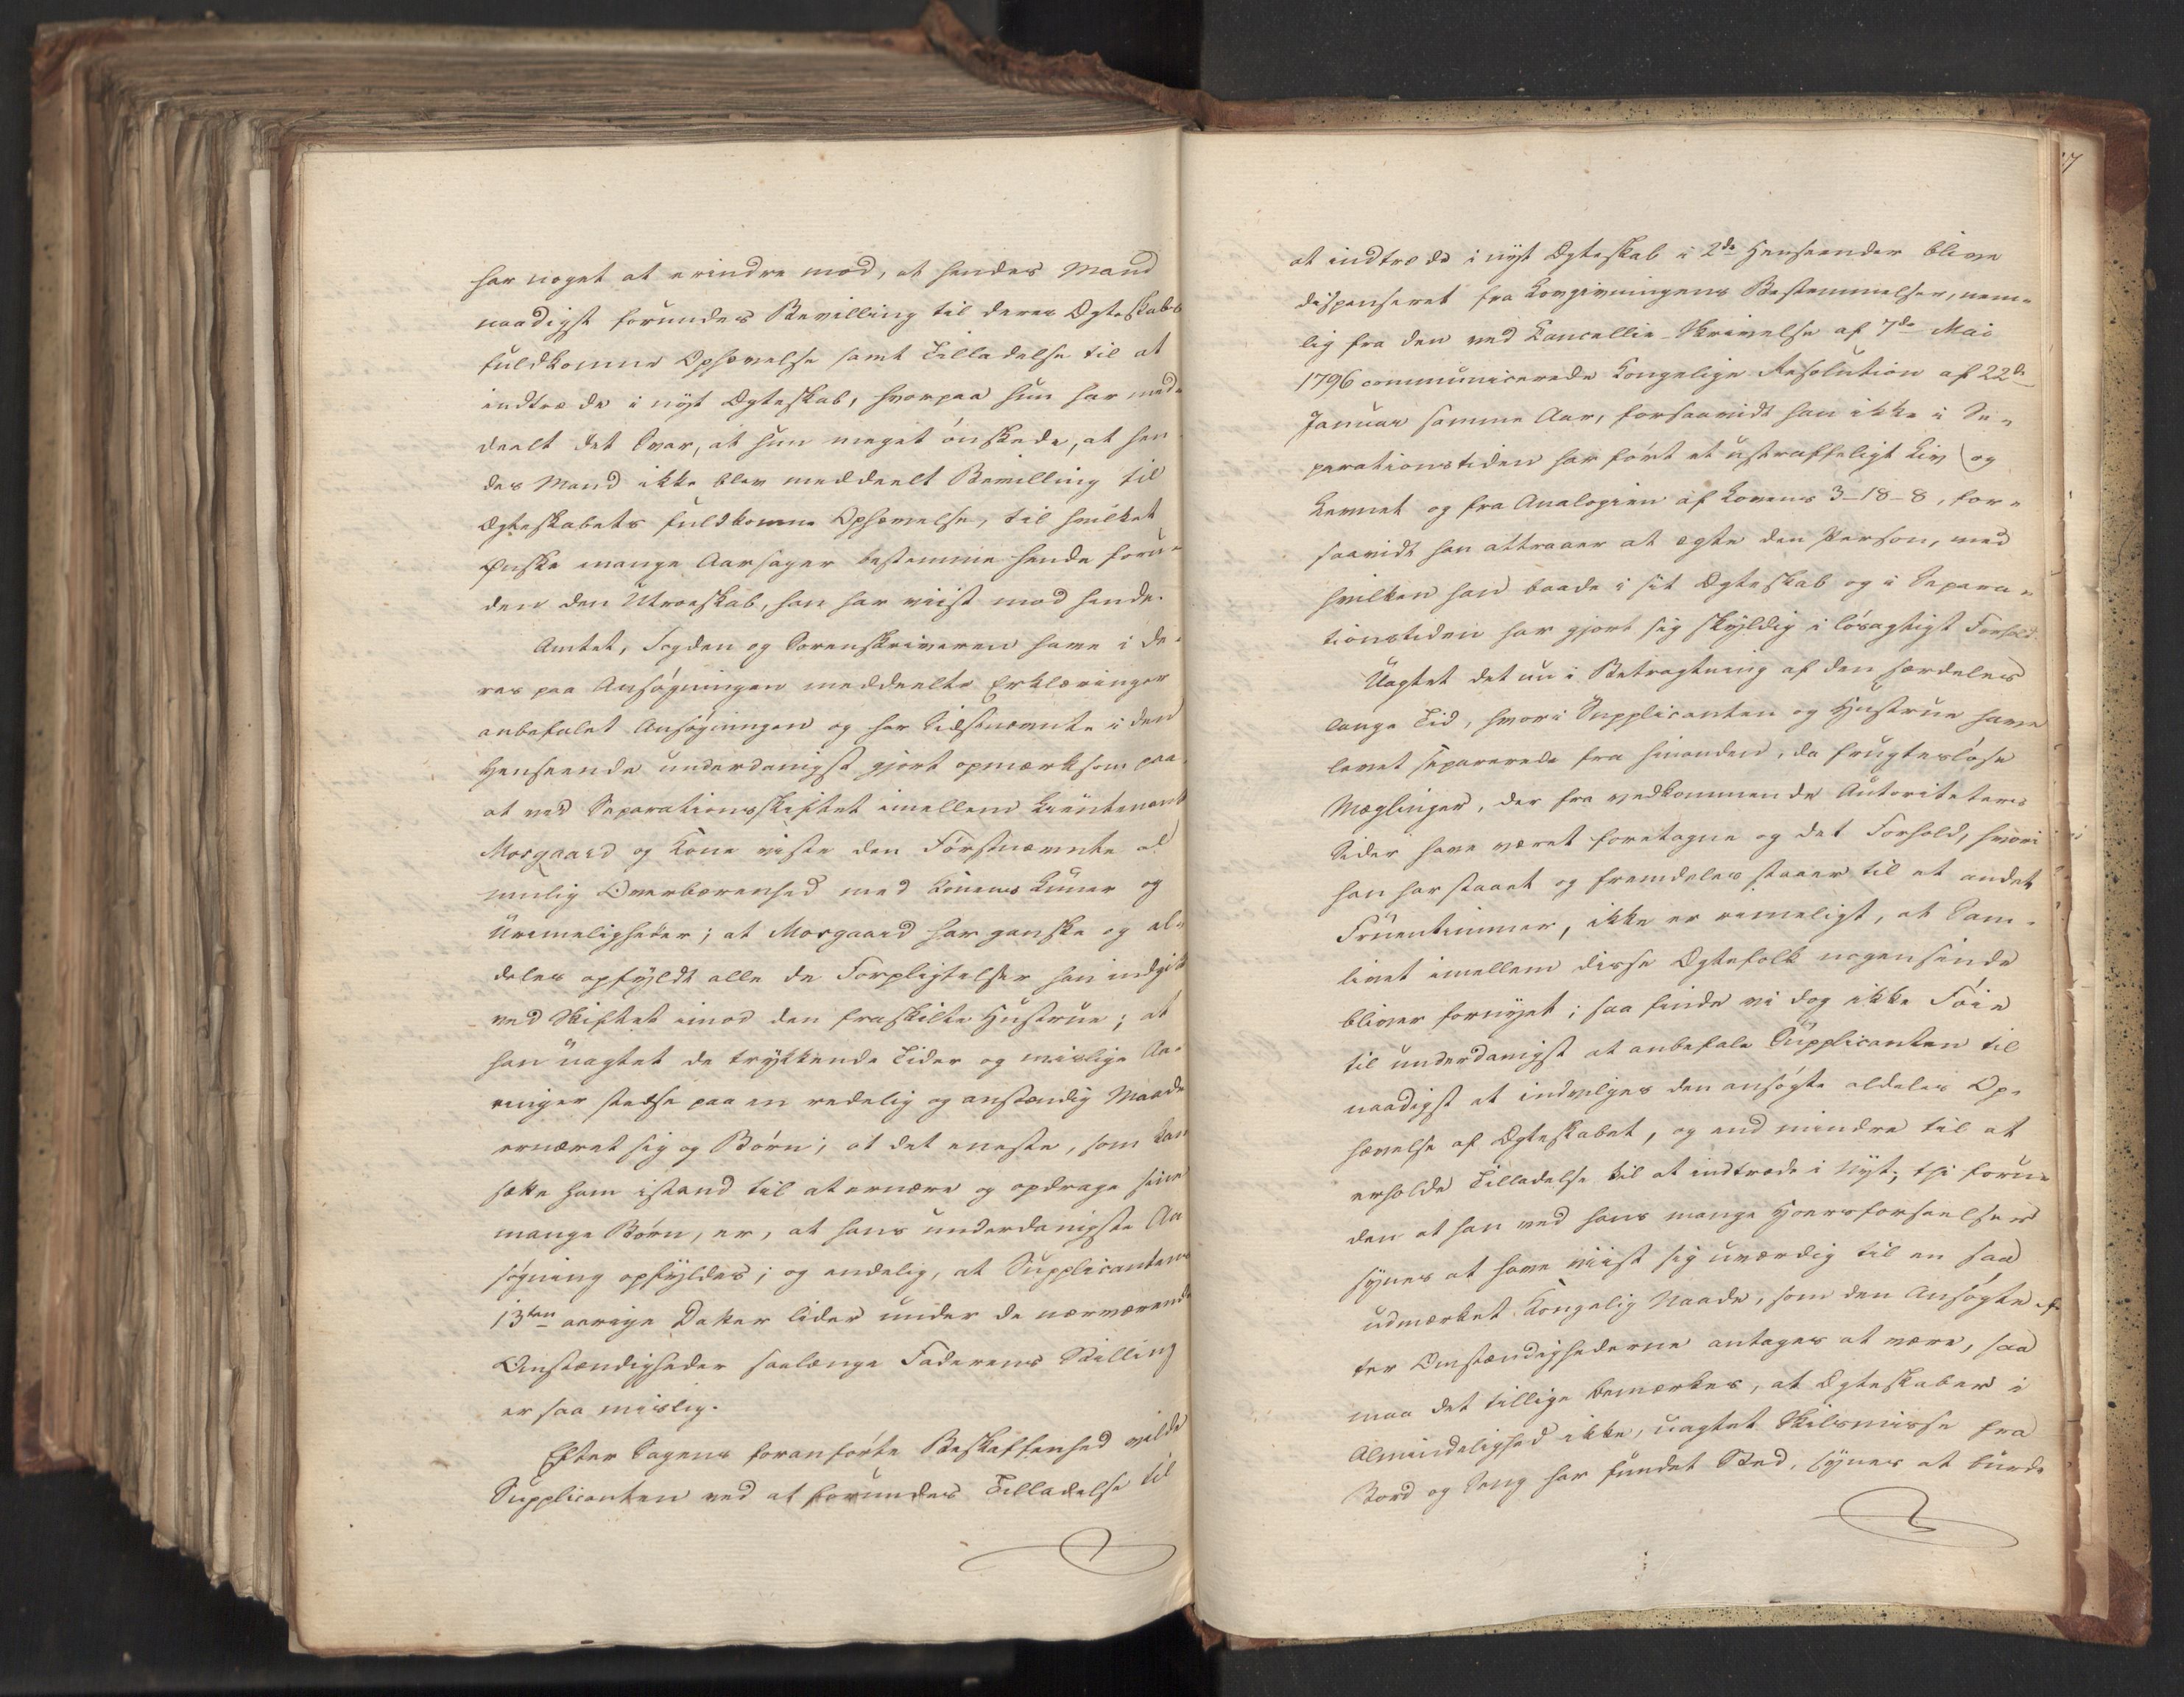 har noget at erindre mod, at hendes Mand
naadigst forundes Bevilling til deres Ægteskabs
fuldkomne Ophævelse samt Tilladelse til at
indtræde i nyt Ægteskab, hvorpaa hun har med-
deelt det Svar, at hun meget ønskede, at hen-
des Mand ikke blev meddeelt Bevilling til
Ægteskabets fuldkomne Ophævelse, til hvilket
Ønske mange Aarsager bestemme hende foru-
den den Utroeskab, han har viist mod hende.
Amtet, Fogden og Sorenskriveren have i de-
res paa Ansøgningen meddeelte Erklæringer
anbefalet Ansøgningen og har Sidstnævnte i den
Henseende underdanigst gjort opmærksom paa,
at ved Separationsskiftet imellem Lieutenant
Morgaard og Kone viste den Førstnævnte al
mulig Overbærenhed med Konens Luner og
Urimeligheder; at Morgaard har ganske og al-
deles opfyldt alle de Forpligtelser han indgik
ved Skiftet imod den fraskilte Hustrue; at
han uagtet de trykkende Tider og mislige Aa-
ringer stedse paa en redelig og anstændig Maade
ernæret sig og Børn; at det eneste, som kan
sætte ham istand til at ernære og opdrage sine
mange Børn, er, at hans underdanigste An
søgning opfyldes; og endelig, at Supplicantens
13ten aarige Datter lider under de nærværende
Omstændigheder saalænge Faderens Stilling
er saa mislig.
Efter Sagens foranførte Beskaffenhed vilde
Supplicanten ved at forundes Tilladelse til
at indtræde i nyt Ægteskab i 2de Henseender blive
dispenseret fra Lovgivningens Bestemmelser, nem-
lig fra den ved Cancellie-Skrivelse af 7de Mai
1796 communicerede Kongelige Resolution af 22de
Januar samme Aar, forsaavidt han ikke i Se-
parationstiden har ført et ustraffeligt Liv og
Levnet og fra Analogien af Lovens 3-18-8, for-
saavidt han attraaer at ægte den Person, med
hvilken han baade i sit Ægteskab og i Separa-
tionstiden har gjort sig skyldig i løsagtigt Forhold.
Uagtet det nu i Betragtning af den særdeles
lange Tid, hvori Supplicanten og Hustrue have
levet separerede fra hinanden, de frugtesløse
Mæglinger, der fra vedkommende Autoriteters
Sider have været foretagne og det Forhold, hvori
han har staaet og fremdeles staaer til et andet
Fruentimmer, ikke er rimeligt, at Sam-
livet imellem disse Ægtefolk nogensinde
bliver fornyet; saa finde vi dog ikke Føie
til underdanigst at anbefale Supplicanten til
naadigst at indvilges den ansøgte aldeles Op-
hævelse af Ægteskabet, og end mindre til at
erholde Tilladelse til at indtræde i Nyt; thi foru-
den at han ved hans mange Hoersforseelser
synes at have viist sig uværdig til en saa
udmærket Kongelig Naade, som den Ansøgte ef-
ter Omstændighederne antages at være, saa
maa det tillige bemærkes, at Ægteskaber i
Almindelighed ikke, uagtet Skilsmisse fra
Bord og Seng har fundet Sted, synes at burde